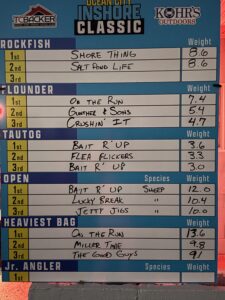 OCEAN CITY
INSHORE
CLASSIC
KOHR'S
OUTDOORS
ROCKFISH Weight
1st SHORE THING 8.6
2nd SALT POND LIFE 8.6
3rd
FLOUNDER Weight
1st ON THE RUN 7.4
2nd GUNTHER & SONS 5.4
3rd CRUSHIN' IT 4.7
TAUTOG Weight
1st BAIT R' UP 3.6
2nd FLEA FLICKERS 3.3
3rd BAIT R' UP 3.0
OPEN Species Weight
1st BAIT R' UP SHEEP 12.0
2nd LUCKY BREAK " 10.4
3rd JETTY JIGS " 10.0
HEAVIEST BAG Weight
1st ON THE RUN 13.6
2nd MILLER TIME 9.8
3rd THE GOOD GUYS 9.1
Jr. ANGLER Species Weight